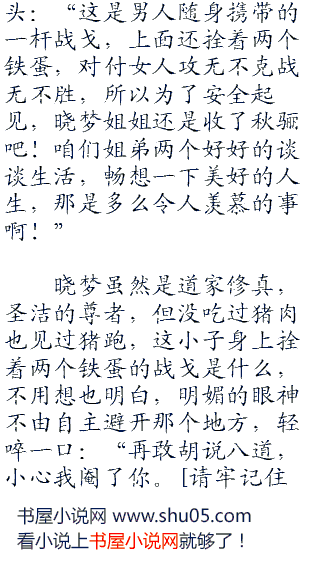 头：“这是男人随身携带的
一杆战戈，上面还拴着两个
铁蛋，对付女人攻无不克战
无不胜，所以为了安全起
见，晓梦姐姐还是收了秋骊
吧！咱们姐弟两个好好的谈
谈生活，畅想一下美好的人
生，那是多么令人羡慕的事
啊！”
晓梦虽然是道家修真，
圣洁的尊者，但没吃过猪肉
也见过猪跑，这小子身上拴
着两个铁蛋的战戈是什么，
不用想也明白，明媚的眼神
不由自主避开那个地方，轻
啐一口：“再敢胡说八道，
小心我阉了你。[请牢记住
书屋小说网 www.shu05.com
看小说上书屋小说网就够了！